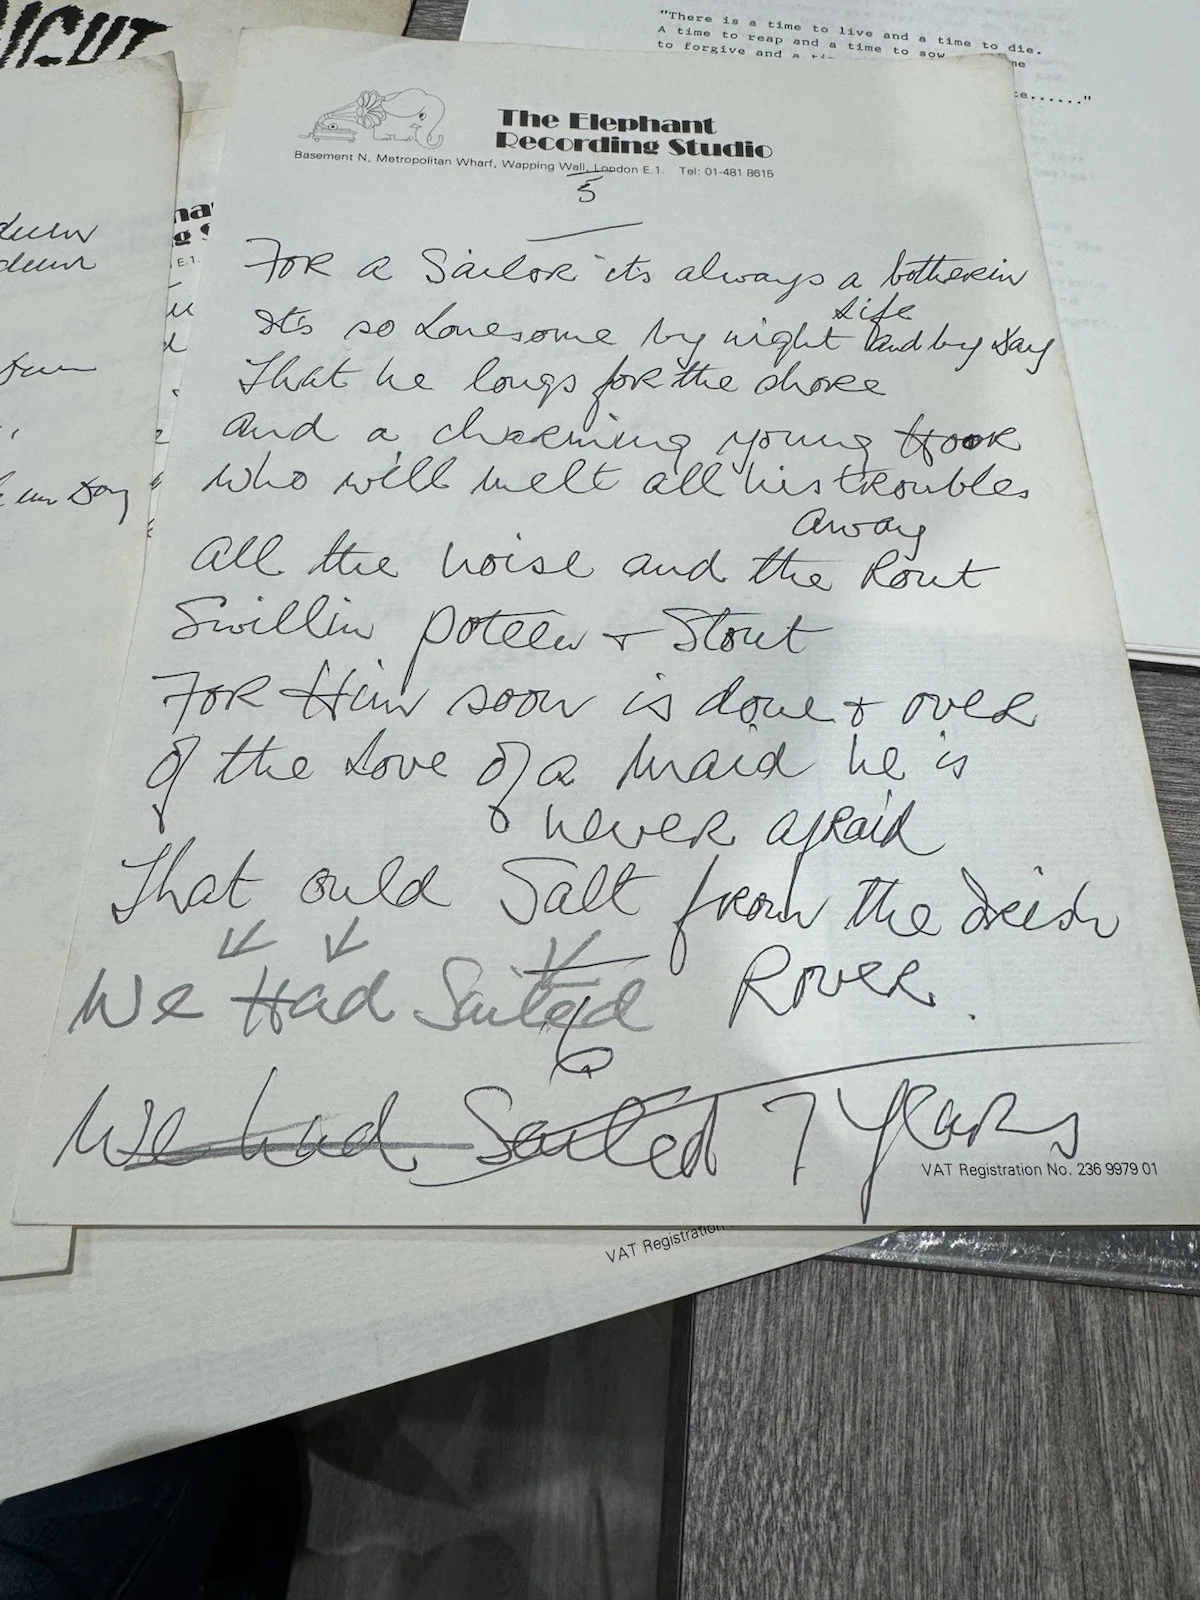 "There is a time to live and a time to die.
A time to reap and a time to sow
to forgive and a
The Elephant
Recording Studio
Basement N, Metropolitan Wharf, Wapping Wall, London E.1. Tel: 01-481 8615
5
FOR a Sailor its always a botherin
life
Its so Lonesome by night and by Day
That he longs for the shore
and a charming young Hoor
who will melt all his troubles
away
all the noise and the Rout
Swillin poteen + Stout
FOR Him soon is done + over
of the Love of a Maid he is
never afraid
That ould Salt from the Irish
Rover.
We Had Sailed
We had Sailed 7 Years
VAT Registration No. 236 9979 01
VAT Registration